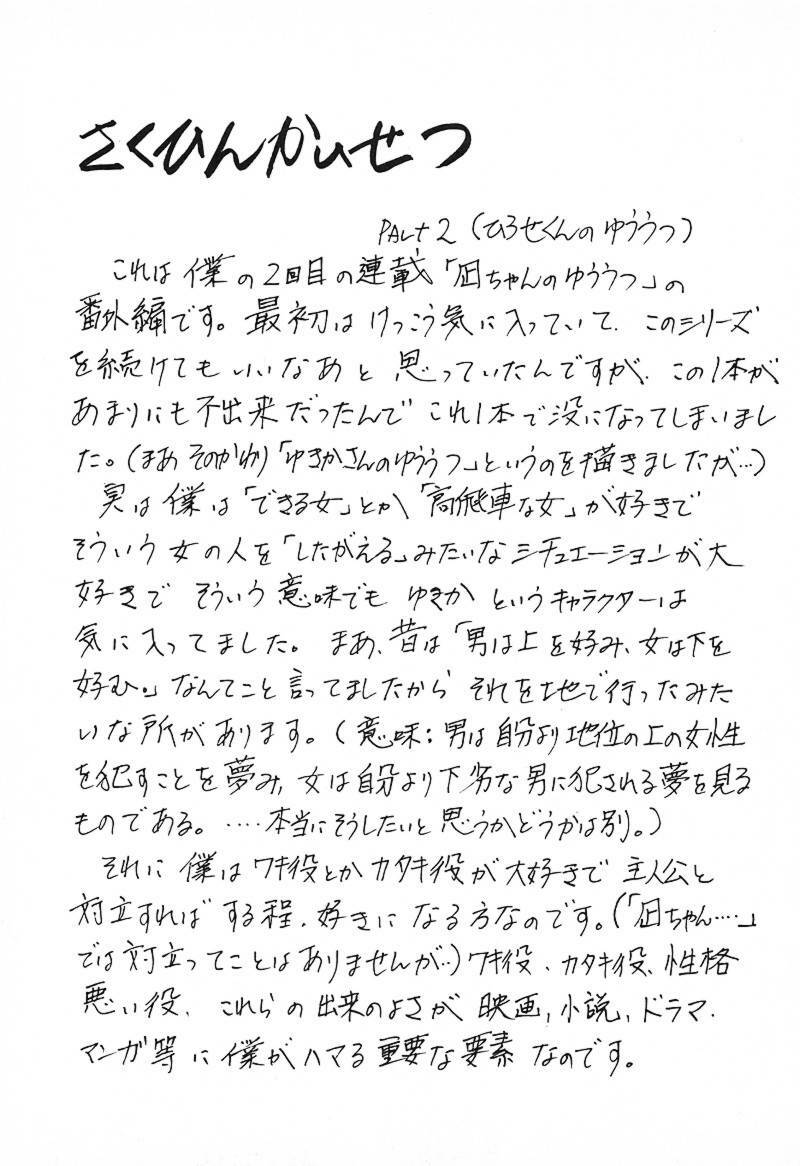 さくひんかいせつ
PArt 2 (ひろせくんのゆううつ)
これは僕の2回目の連載「凪ちゃんのゆううつ」の
番外編です。最初はけっこう気に入っていて、このシリーズ
を続けてもいいなあと思っていたんですが、この1本が
あまりにも不出来だったんでこれ1本で没になってしまいまし
た。(まあそのかわり「ゆきかさんのゆううつ」というのを描きましたが…)
実は僕は「できる女」とか「高飛車な女」が好きで
そういう女の人を「したがえる」みたいなシチュエーションが大
好きでそういう意味でもゆきかというキャラクターは
気に入ってました。まあ、昔は「男は上を好み、女は下を
好む。」なんてこと言ってましたからそれを地で行ったみた
いな所があります。(意味:男は自分より地位の上の女性
を犯すことを夢み、女は自分より下劣な男に犯される夢を見る
ものである。‥‥本当にそうしたいと思うかどうかは別。)
それに僕はワキ役とかカタキ役が大好きで主人公と
対立すればする程、好きになる方なのです。(「凪ちゃん‥‥」
では対立ってことはありませんが…)ワキ役、カタキ役、性格
悪い役、これらの出来のよさが映画、小説、ドラマ、
マンガ等に僕がハマる重要な要素なのです。